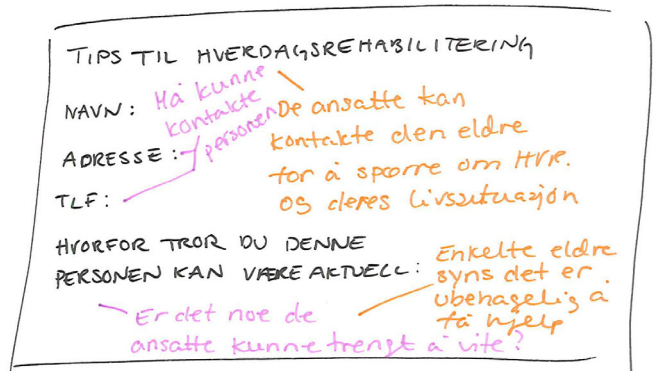 TIPS TIL HVERDAGSREHABILITERING
NAVN:
ADRESSE:
TLF:
Må kunne
kontakte
personen
De ansatte kan
kontakte den eldre
for å spørre om HVR.
og deres livssituasjon
HVORFOR TROR DU DENNE
PERSONEN KAN VÆRE AKTUELL:
Enkelte eldre
syns det er
ubehagelig å
få hjelp
Er det noe de
ansatte kunne trengt å vite?